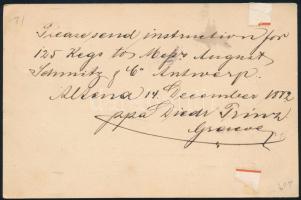 Please send instruction for
125 Kegs to Messrs August
Schmitz & "C" Antwerp.
Altena 14 December 1882
ppa Diedr Prinz